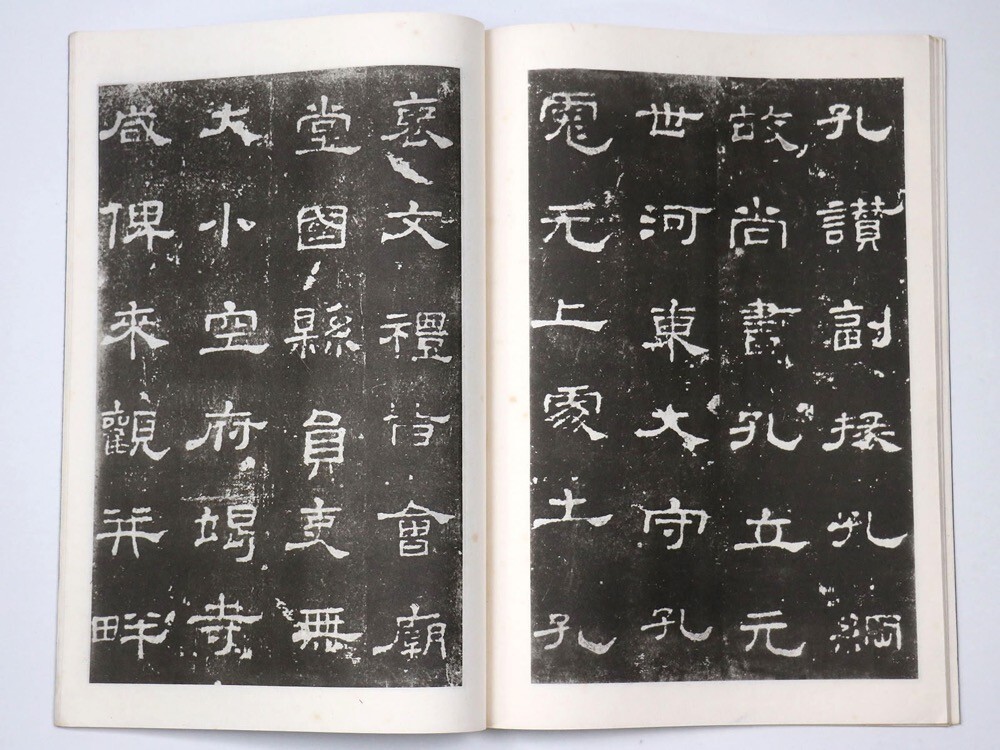 孔讚副掾孔綱
故尚書孔立元
世河東大守孔
彪元上處士孔
褒文禮皆會廟
堂國縣員吏無
大小空府竭寺
咸俾來觀并畔